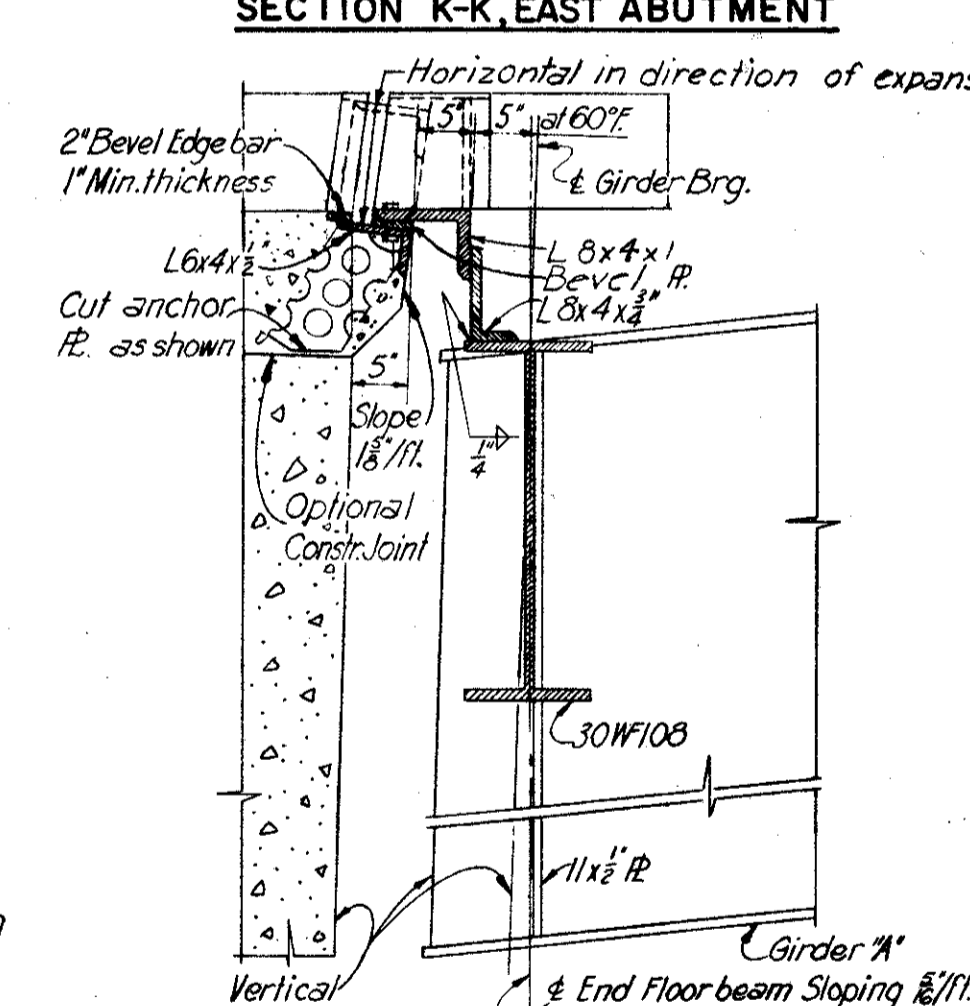 SECTION K-K, EAST ABUTMENT
Horizontal in direction of expans
5" 5" at 60°F.
2" Bevel Edge bar
1" Min. thickness
℄ Girder Brg.
L6x4x½"
L 8x4x1
Bevel ℞.
L 8x4x¾"
Cut anchor
℞. as shown
5"
Slope
1⅝"/ft.
¼"
Optional
Constr. Joint
30WF108
11x½" ℞
Girder "A"
Vertical
℄ End Floorbeam Sloping 5/16"/ft.